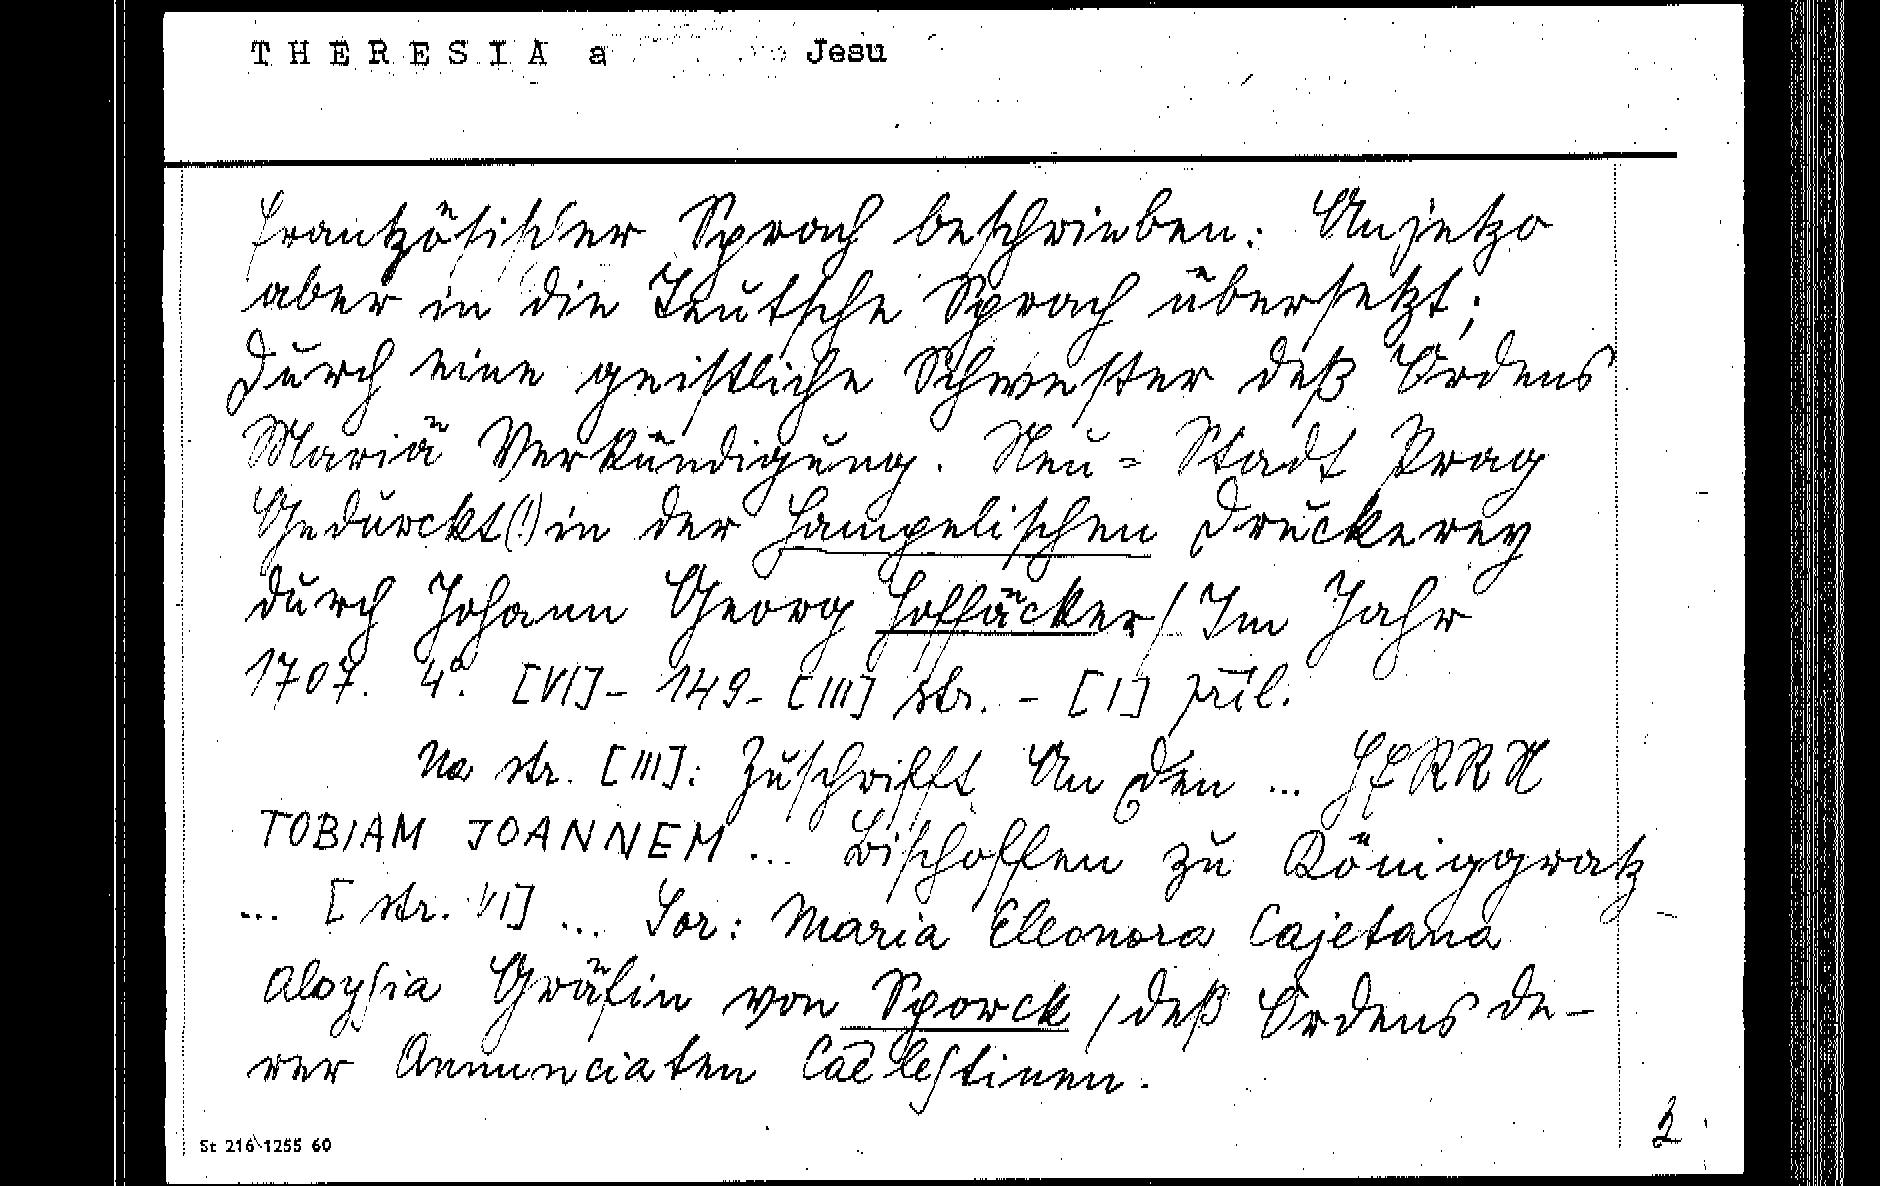 THERESIA a Jesu
frantzösischer Sprach beschrieben: Anjetzo
aber in die Teutsche Sprach übersetzt;
Durch eine geistliche Schwester deß Ordens
Mariä Verkündigung. Neu=Stadt Prag
Gedurckt(!) in der Hampelischen Druckerey
durch Johann Georg Hoffäcker/ Im Jahr
1707. 4°. [VI]-149-[III] str. - [I] příl.
Na str. [III]: Zuschrifft An den ... HERRN
TOBIAM JOANNEM ... Bischoffen zu Königgratz
... [str. VI] ... Sor: Maria Eleonora Cajetana
Aloysia Gräfin von Sporck / deß Ordens de-
rer Annunciaten Caelestinen.
St 216-1255 60
2